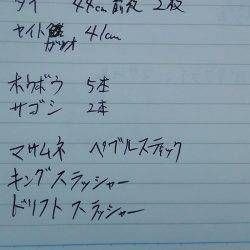 タイ 44cm前後 2枚
セイト鰹 41cm
ガツオ
ホウボウ 5本
サゴシ 2本
マサムネ ペブルスティック
キングスラッシャー
ドリフトスラッシャー